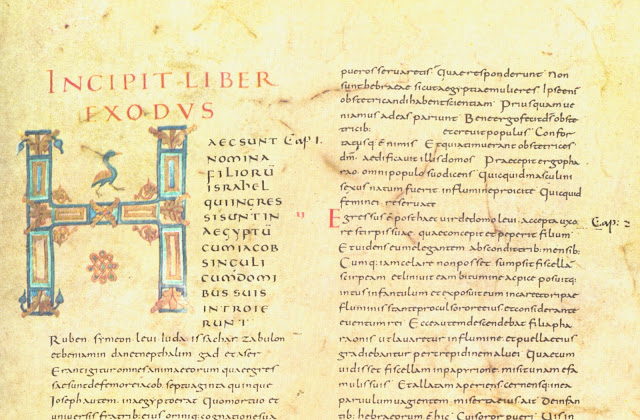 INCIPIT LIBER
EXODVS
HAEC SUNT Cap 1.
NOMINA
FILIORŪ
ISRAHEL
QUI INGRES
SI SUNT IN
AEGYPTŪ
CUM IACOB
SINGULI
CUM DOMI
BUS SUIS
INTROIE
RUNT
Ruben symeon leui iuda issachar zabulon
et beniamin dan et nepthalim gad et aser
Erant igitur omnes animae eorum quae egres
sae sunt de femore iacob septuaginta quinque
Ioseph autem in aegypto erat Quo mortuo et
uniuersis fratrib; eius omniq; cognatione sua
pueros seruaretis Quae responderunt Non
sunt hebraeae sicut aegyptiae mulieres Ipsae enī
obstetricandi habent scientiam Priusquam ue
niamus ad eas pariunt Bene ergo fecit dš obste
tricib; et creuit populus Confor
tatusq; ē nimis Et quia timuerant obstetrices
dm̄ aedificauit illis domos Praecepit ergo pha
rao omni populo suo dicens Quicquid masculini
sexus natum fuerit in flumine proicite Quicquid
feminei reseruate
Egressus ē post haec uir de domo leui accepta uxo Cap: 2
re stirpis suae quae concepit et peperit filium
Et uidens eum elegantem abscondit trib; mensib;
Cumq; iam celare non posset sumpsit fiscellā
scirpeam et liniuit eam bitumine ac pice posuitq;
intus infantulum et exposuit eum in carecto ripae
fluminis stante procul sorore eius et considerante
euentum rei Ecce autem descendebat filia pha
raonis ut lauaretur in flumine et puellae eius
gradiebantur per crepidinem aluei Quae cum
uidisset fiscellam in papyrione misit unam e fa
mulis suis Et allatam aperiens cernensq; in ea
paruulum uagientem miserta eius ait De infan
tib; hebraeorum ē hic Cui soror pueri Uis in